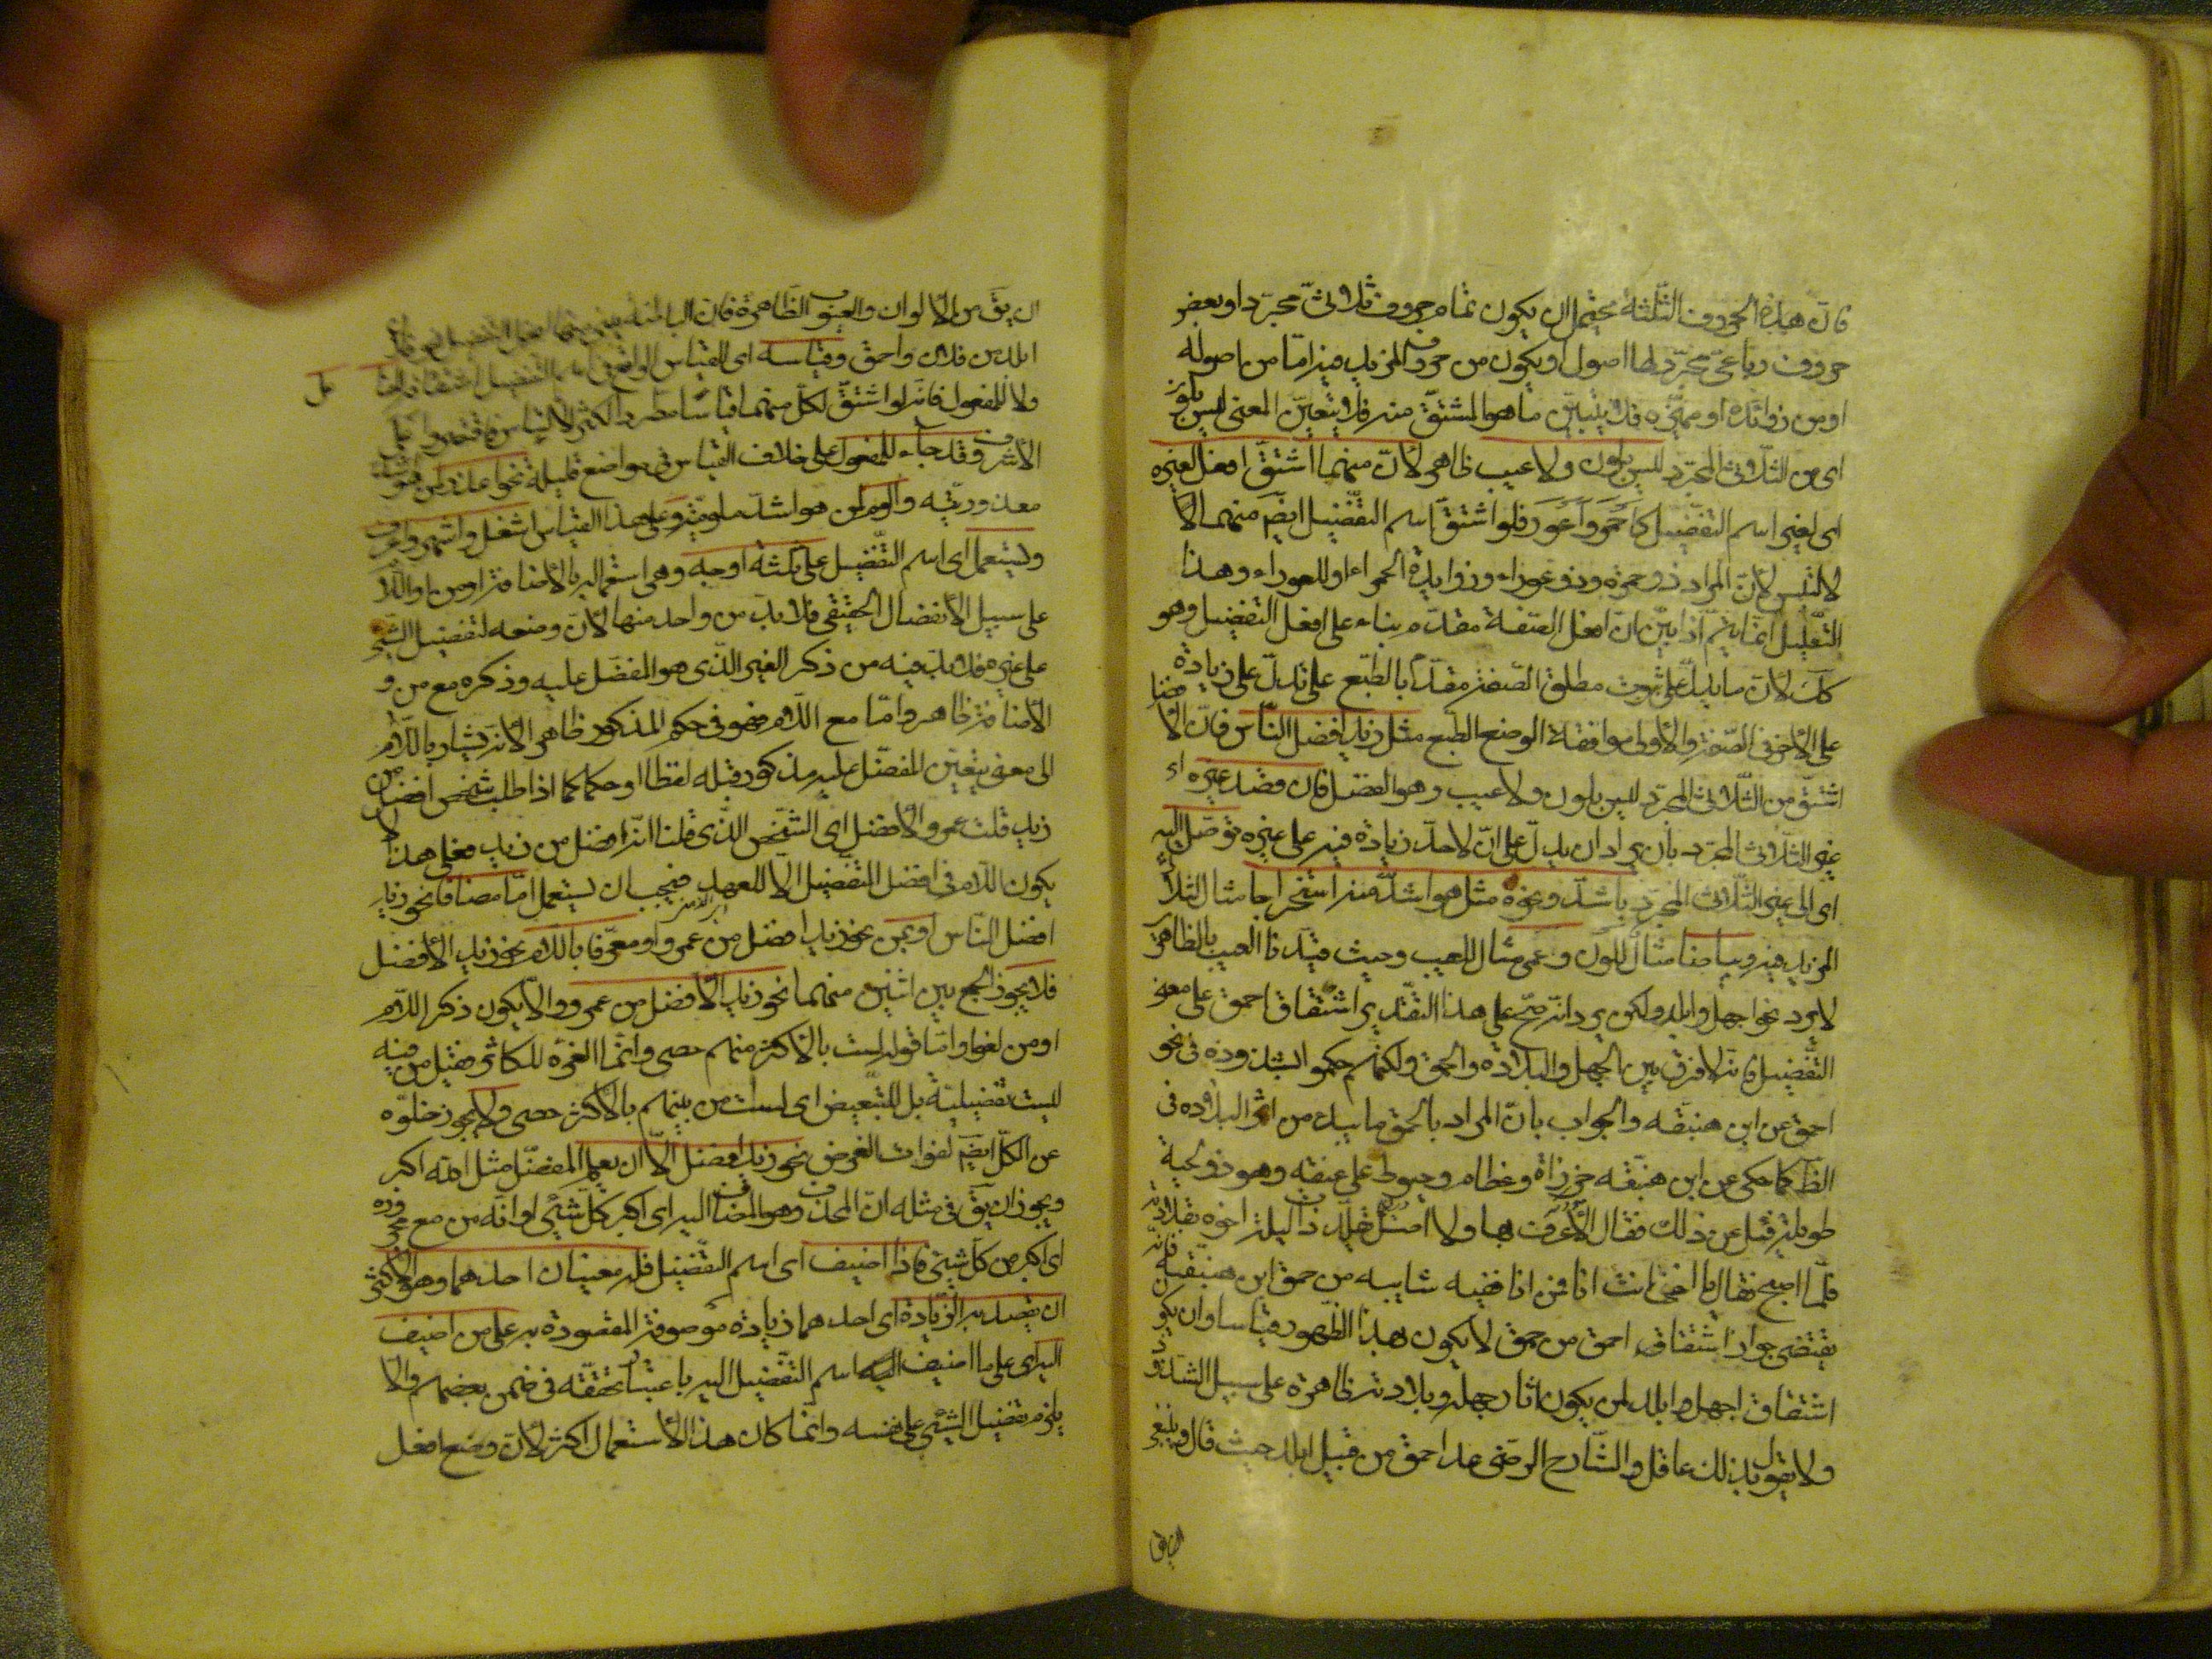 فان هذه الحروف الثلثة يحتمل ان يكون تمام حروف ثلاثى مجرد او بعض
حروف رباعى مجرد كلها اصول او يكون من حروف المزيد فيه اما من اصوله
او من زوائده او ممتزجه فلا يتبين ما هو المشتق منه فلا يتعين المعنى ليس بلون
اى من الثلاثى المجرد ليس بلون ولا عيب ظاهر لان منهما اشتق افعل لغيره
اى لغير اسم التفضيل كاحمر واعور فلو اشتق اسم التفضيل ايضم منهما الا
لالتبس لان المراد ذو حمرة وذو عور او زوايدة الحمرة او العور وهذا
التعليل انما يتم اذا بين ان افعل الصفة مقدم بناء على افعل التفضيل وهو
كك لان ما يدل على ثبوت مطلق الصفة مقدم بالطبع على ما يدل على زيادة
على الاخر فى الصفة والاولى موافقة الوضع الطبع مثل زيد افضل الناس فان الا فضا
اشتق من الثلاثى المجرد ليس بلون ولا عيب وهو الفضل فان قصد غيره اى
غير الثلاثى المجرد بان يراد ان يدل على ان لاحد زيادة فيه على غيره توصل اليه
اى الى غير الثلاثى المجرد باشد ونحوه مثل هو اشد منه استخراجا مثال الثلاثى
المزيد فيه وبياضا مثال للون وعمى مثال للعيب وحيث قيدنا العيب بالظاهر
لا يرد نحو اجهل وابلد ولكن يرد انه صح على هذا التقدير اشتقاق احمق على معنى
التفضيل فانه لا فرق بين الجهل والبلادة والحمق ولكنهم حكموا بشذوذه فى نحو
احمق من ابن هبنقه والجواب بان المراد بالحمق ما يبدو من اثر البلادة فى
الظ كما حكى عن ابن هبنقه خرزاة وعظام وخيوط على عنقه وهو ذو لحية
طويلة قيل عن ذلك فقال لاعرف بها ولا اضل فقلد ذات ليلة اخوه بقلادته
فلما اصبح فقال يا اخى انت انا فمن انا ففيه شايبه من حمق ابن هبنقه فانه
يقتضى جواز اشتقاق احمق من حمق لا يكون بهذا الظهور قياسا وان يكون
اشتقاق اجهل وابلد لمن يكون اثار جهله وبلادته ظاهرة على سبيل الشذوذ
ولا يقول بذلك عاقل والشارح الرضى عد احمق من قبيل ابلد حيث قال وينبغى
ان يق
ان يق من الالوان والعيوب الظاهرة فان الباطنة يبنى منها افعل التفضيل نحو فلان
ابلد من فلان واحمق وقياسه اى القياس الواقع فى اسم التفضيل اشتقاقه للفا
عل
ولا للمفعول فانه لو اشتق لكل منهما قياسا مطردا لكثر الالتباس فاقتصروا على
الاشرف وقد جاء للمفعول على خلاف القياس فى مواضع قليلة نحو اعذر لمن هو اشد
معذوريته والوم لمن هو اشد ملومية وعلى هذا القياس اشغل واشهر واعرف
ويستعمل اى اسم التفضيل على ثلثة اوجه وهى استعماله بالاضافة او من او اللام
على سبيل الانفصال الحقيقى فلا بد من واحد منها لان وضعه لتفضيل الشىء
على غيره فلا بد فيه من ذكر الغير الذى هو المفضل عليه وذكره مع من و
الاضافة ظاهر واما مع اللام فهو فى حكم المذكور ظاهرا لانه يشار باللام
الى معين يتعين المفضل عليه مذكور قبله لفظا او حكما كما اذا طلب شخص افضل من
زيد قلت عمرو الافضل اى الشخص الذى قلنا انه افضل من زيد فعلى هذا لا
يكون اللام فى افضل التفضيل الا للعهد فيجب ان يستعمل اما مضافا نحو زيد
افضل الناس او بمن نحو زيد افضل من عمرو او معرفا باللام نحو زيد الافضل
فلا يجوز الجمع بين اثنين منهما نحو زيد الافضل من عمرو والا يكون ذكر اللام
او من لغوا واما قوله لست بالاكثر منهم حصى وانما العزة للكاثر فقيل من فيه
ليست تفضيلية بل للتبعيض اى لست من بينهم بالاكثر حصى ولا يجوز خلوه
عن الكل ايضم لفوات الغرض نحو زيد افضل الا ان يعلم المفضل مثل الله اكبر
ويجوز ان يق فى مثله ان المحذوف هو المضاف اليه اى اكبر كل شىء او انه من مع مجروره
اى اكبر من كل شىء فاذا اضيف اى اسم التفضيل فله معنيان احدهما وهو الاكثر
ان يقصد به الزيادة اى احدهما زيادة موصوفة المقصودة به على من اضيف
اليه اى على ما اضيف اليه اسم التفضيل اليه باعتبار تحققه فى ضمن بعضهم والا
يلزم تفضيل الشىء على نفسه وانما كان هذا الاستعمال اكثر لان وضع افعل